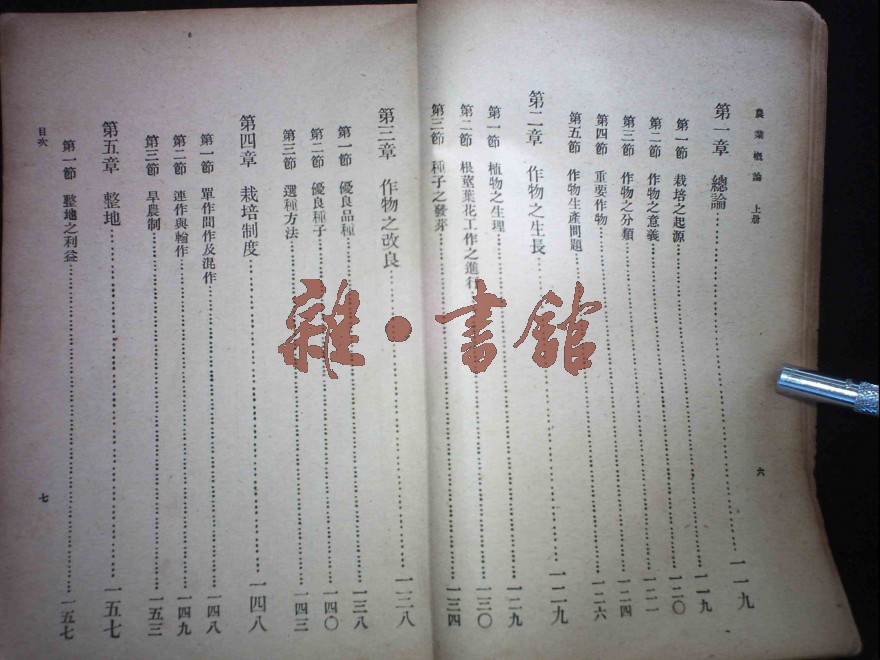 農業概論 上册
六
第一章 總論 一一九
第一節 栽培之起源 一一九
第二節 作物之意義 一二〇
第三節 作物之分類 一二一
第四節 重要作物 一二四
第五節 作物生產問題 一二六
第二章 作物之生長 一二九
第一節 植物之生理 一二九
第二節 根莖葉花工作之進行 一三〇
第三節 種子之發芽 一三四
第三章 作物之改良 一三八
第一節 優良品種 一三八
第二節 優良種子 一四〇
第三節 選種方法 一四三
第四章 栽培制度 一四八
第一節 單作間作及混作 一四八
第二節 連作與輪作 一四九
第三節 旱農制 一五三
第五章 整地 一五七
第一節 整地之利益 一五七
目次
七
雜·書館